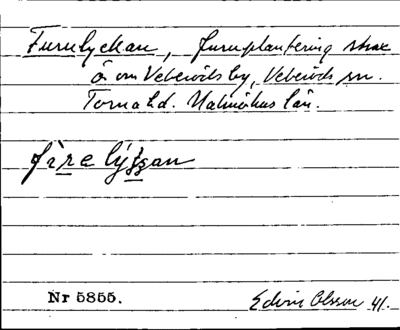 Furulyckan, furuplantering strax
ö om Veberöds by, Veberöds sn.
Torna hd. Malmöhus län.
Nr 5855.
Edvin Olsson 41.